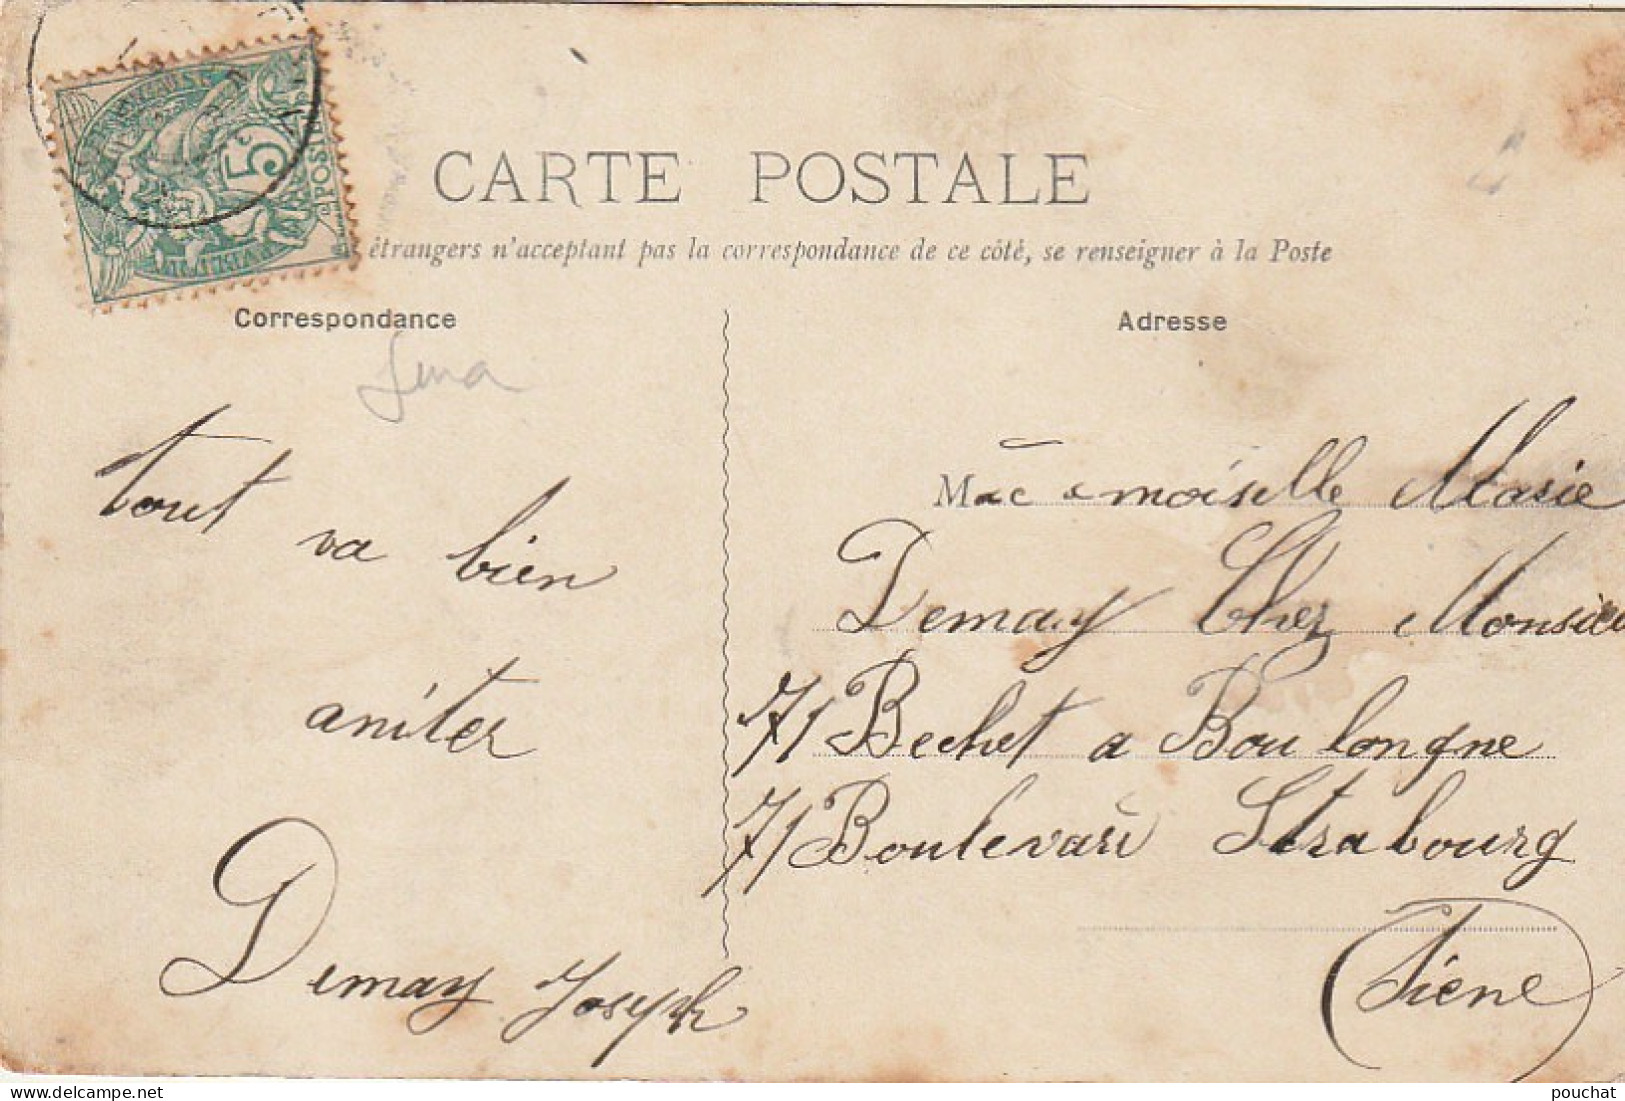 CARTE POSTALE
étrangers n'acceptant pas la correspondance de ce côté, se renseigner à la Poste
Correspondance
tout
va bien
aniter
Demay Joseph
Adresse
Mademoiselle Marie
Demay Chez Monsieu
71 Bechet a Boulongne
71 Boulevard Strabourg
(Siene)
5c
POSTES
pouchat